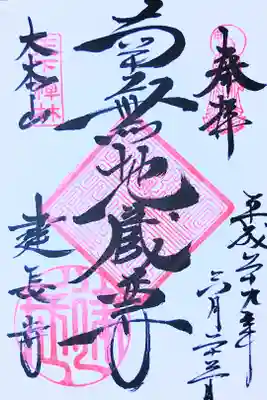 奉拝
平成廿九年
六月二十三日
南無地蔵尊
大本山
建長寺